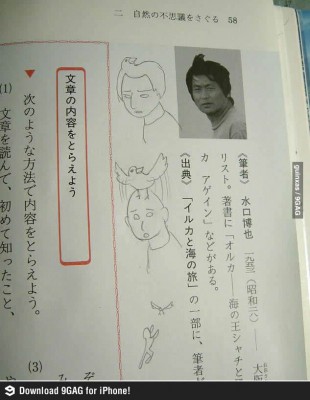 二 自然の不思議をさぐる 58
《筆者》 水口博也 一九五三(昭和二八)―― 大阪
リスト。著書に「オルカ――海の王シャチと
カ アゲイン」などがある。
《出典》 「イルカと海の旅」の一部に、筆者が
文章の内容をとらえよう
▼ 次のような方法で内容をとらえよう。
(1) 文章を読んで、初めて知ったこと、
(3)
guinxas / 9GAG
Download 9GAG for iPhone!